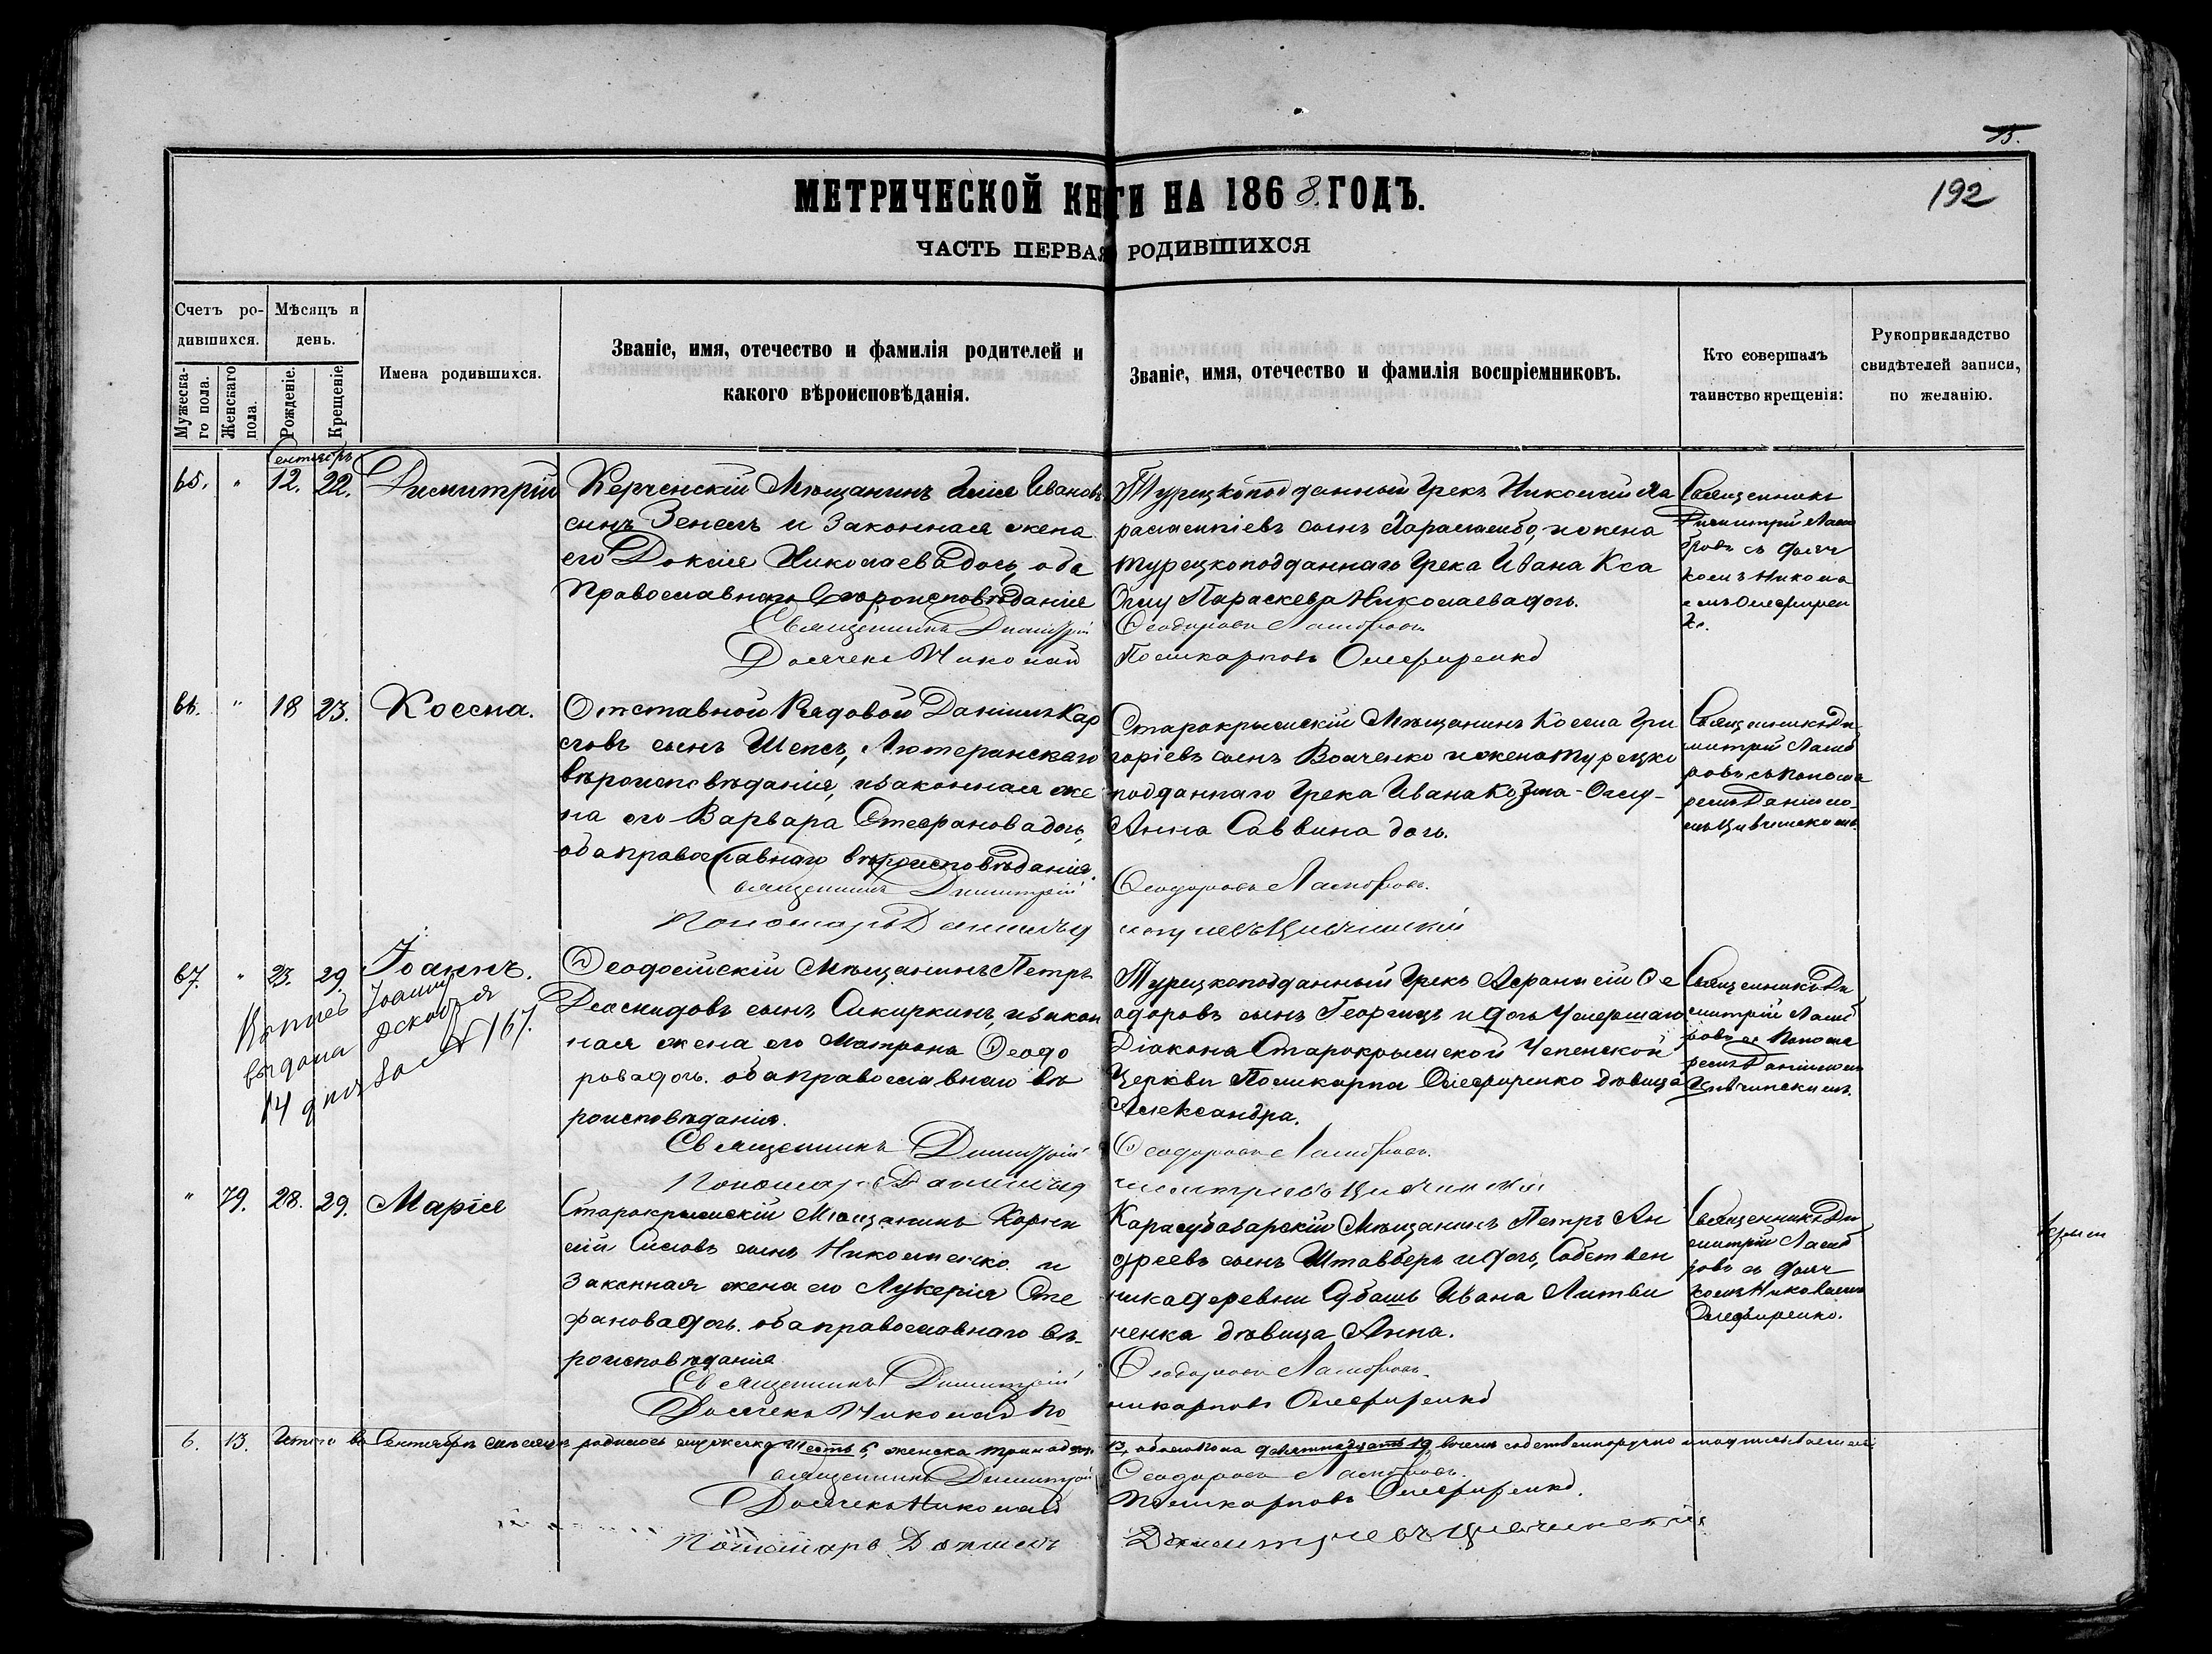 75.
192
МЕТРИЧЕСКОЙ КНГИ НА 1868. ГОДЪ.
ЧАСТЬ ПЕРВАЯ РОДИВШИХСЯ
Счетъ ро-
дившихся.
Мужеска-
го пола.
Женскаго
пола.
Мѣсяцъ и
день.
Рожденіе.
Крещеніе
Имена родившихся.
Званіе, имя, отечество и фамилія родителей и
какого вѣроисповѣданія.
Званіе, имя, отечество и фамилія воспріемниковъ.
Кто совершалъ
таинство крещенія:
Рукоприкладство
свидѣтелей записи,
по желанію.
Сентябрь
65. " 12. 22. Димитрій
Керченскій Мѣщанинъ Илія Ивановъ
сынъ Зенель и Законная жена
его Докия Николаева дочь, оба
Православнаго Вѣроисповѣданія
Священникъ Димитрій
Дьячекъ Николай
Турецкоподданный Грекъ Николай
сынъ и жена
турецкоподданнаго Грека Ивана Кса
Оглу Параскева Николаева дочь.
Ѳеодоровъ Ламбровъ
Поликарповъ Олефиренко
Священникъ
Димитрій Ламб
ровъ съ Дьяч
комъ Никола
емъ Олефирен
ко.
66. " 18 23. Косма.
Отставной Рядовой Даніилъ Кар
ловъ сынъ Шепсъ, Лютеранскаго
вѣроисповѣданія, и законная же
на его Варвара Стефанова дочь,
оба православнаго вѣроисповѣданія.
Священникъ Димитрій
Пономарь Даніилъ
Старокрымскій Мѣщанинъ Косма Гри
горіевъ сынъ Волченко и жена турецко
подданнаго Грека Ивана Козма-Оглу-
Анна Саввина дочь.
Ѳеодоровъ Ламбровъ.
Цивчинскій
Священникъ Ди
митрій Ламб
ровъ съ Понома
ремъ Даніило
мъ Цивчинскимъ.
67. " 23. 29. Іоаннъ.
Копиев Іоанну
выдана Декабря
14 дня За № 167.
Ѳеодосійскій Мѣщанинъ Петръ
сынъ Сикиркинъ, и закон
ная жена его Матрона Ѳеодо
рова дочь. оба православнаго вѣ
роисповѣданія.
Священникъ Димитрій
Пономарь Даніилъ
Турецкоподданный Грекъ Афанасій Ѳе
одоровъ сынъ Георгицъ и дочь Умершаго
Діакона Старокрымской Успенской
Церкви Поликарпа Олефиренко дѣвица
Александра.
Ѳеодоровъ Ламбровъ.
Димитріевъ Цивчинскій
Священникъ Ди
митрій Ламб
ровъ съ Понома
ремъ Даніиломъ
Цивчинскимъ.
" 79. 28. 29. Марія
Старокрымскій Мѣщанинъ Корни
лій Сысоевъ сынъ Николаенко и
Законная жена его Лукерія Сте
фанова дочь. оба православнаго вѣ-
роисповѣданія
Священникъ Димитрій
Дьячекъ Николай По
Карасубазарскій Мѣщанинъ Петръ Ан
дреевъ сынъ Штавберъ и дочь, Собствен
ника деревни Ябашъ Ивана Литви
ненка дѣвица Анна.
Ѳеодоровъ Ламбровъ.
ликарповъ Олефиренко
Священникъ Ди
митрій Ламб
ровъ съ Дьяч
комъ Николаемъ
Олефиренко.
6. 13. Итого въ Сентябрѣ мѣсяцѣ родилось мужеска Шесть 6, женска тринадцать 13, обоего пола девятнадцать 19,
Священникъ Димитрій Ѳеодоровъ Ламбровъ.
Дьячекъ Николай Поликарповъ Олефиренко.
Пономарь Даніилъ Димитріевъ Цивчинскій